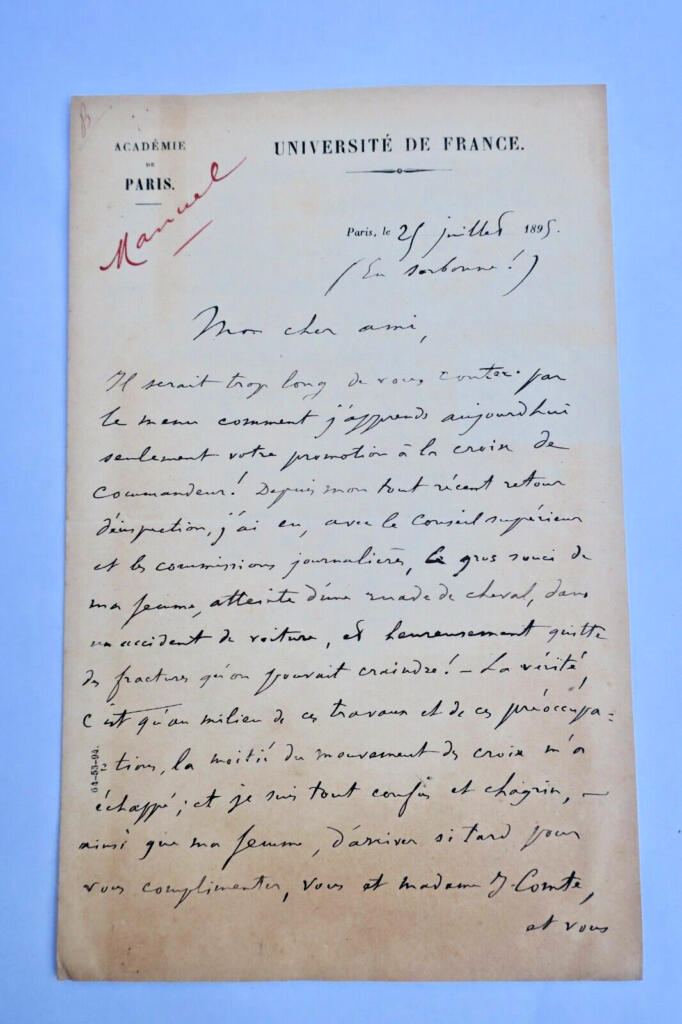 B
ACADÉMIE
DE
PARIS.
UNIVERSITÉ DE FRANCE.
Manuel
Paris, le 25 juillet 1895.
(En Sorbonne!)
Mon cher ami,
Il serait trop long de vous conter par
le menu comment j'apprends aujourd'hui
seulement votre promotion à la croix de
commandeur! Depuis mon tout récent retour
d'inspection, j'ai eu, avec le Conseil supérieur
et les commissions journalières, le gros souci de
ma femme, atteinte d'une ruade de cheval, dans
un accident de voiture, et heureusement quitte
des fractures qu'on pouvait craindre! – La vérité,
c'est qu'au milieu de ces travaux et de ces préoccupa=
=tions, la moitié du mouvement des croix m'a
échappé; et je suis tout confus et chagrin, –
ainsi que ma femme, d'arriver si tard pour
vous complimenter, vous et madame J-Comte,
et vous
64-53-94.